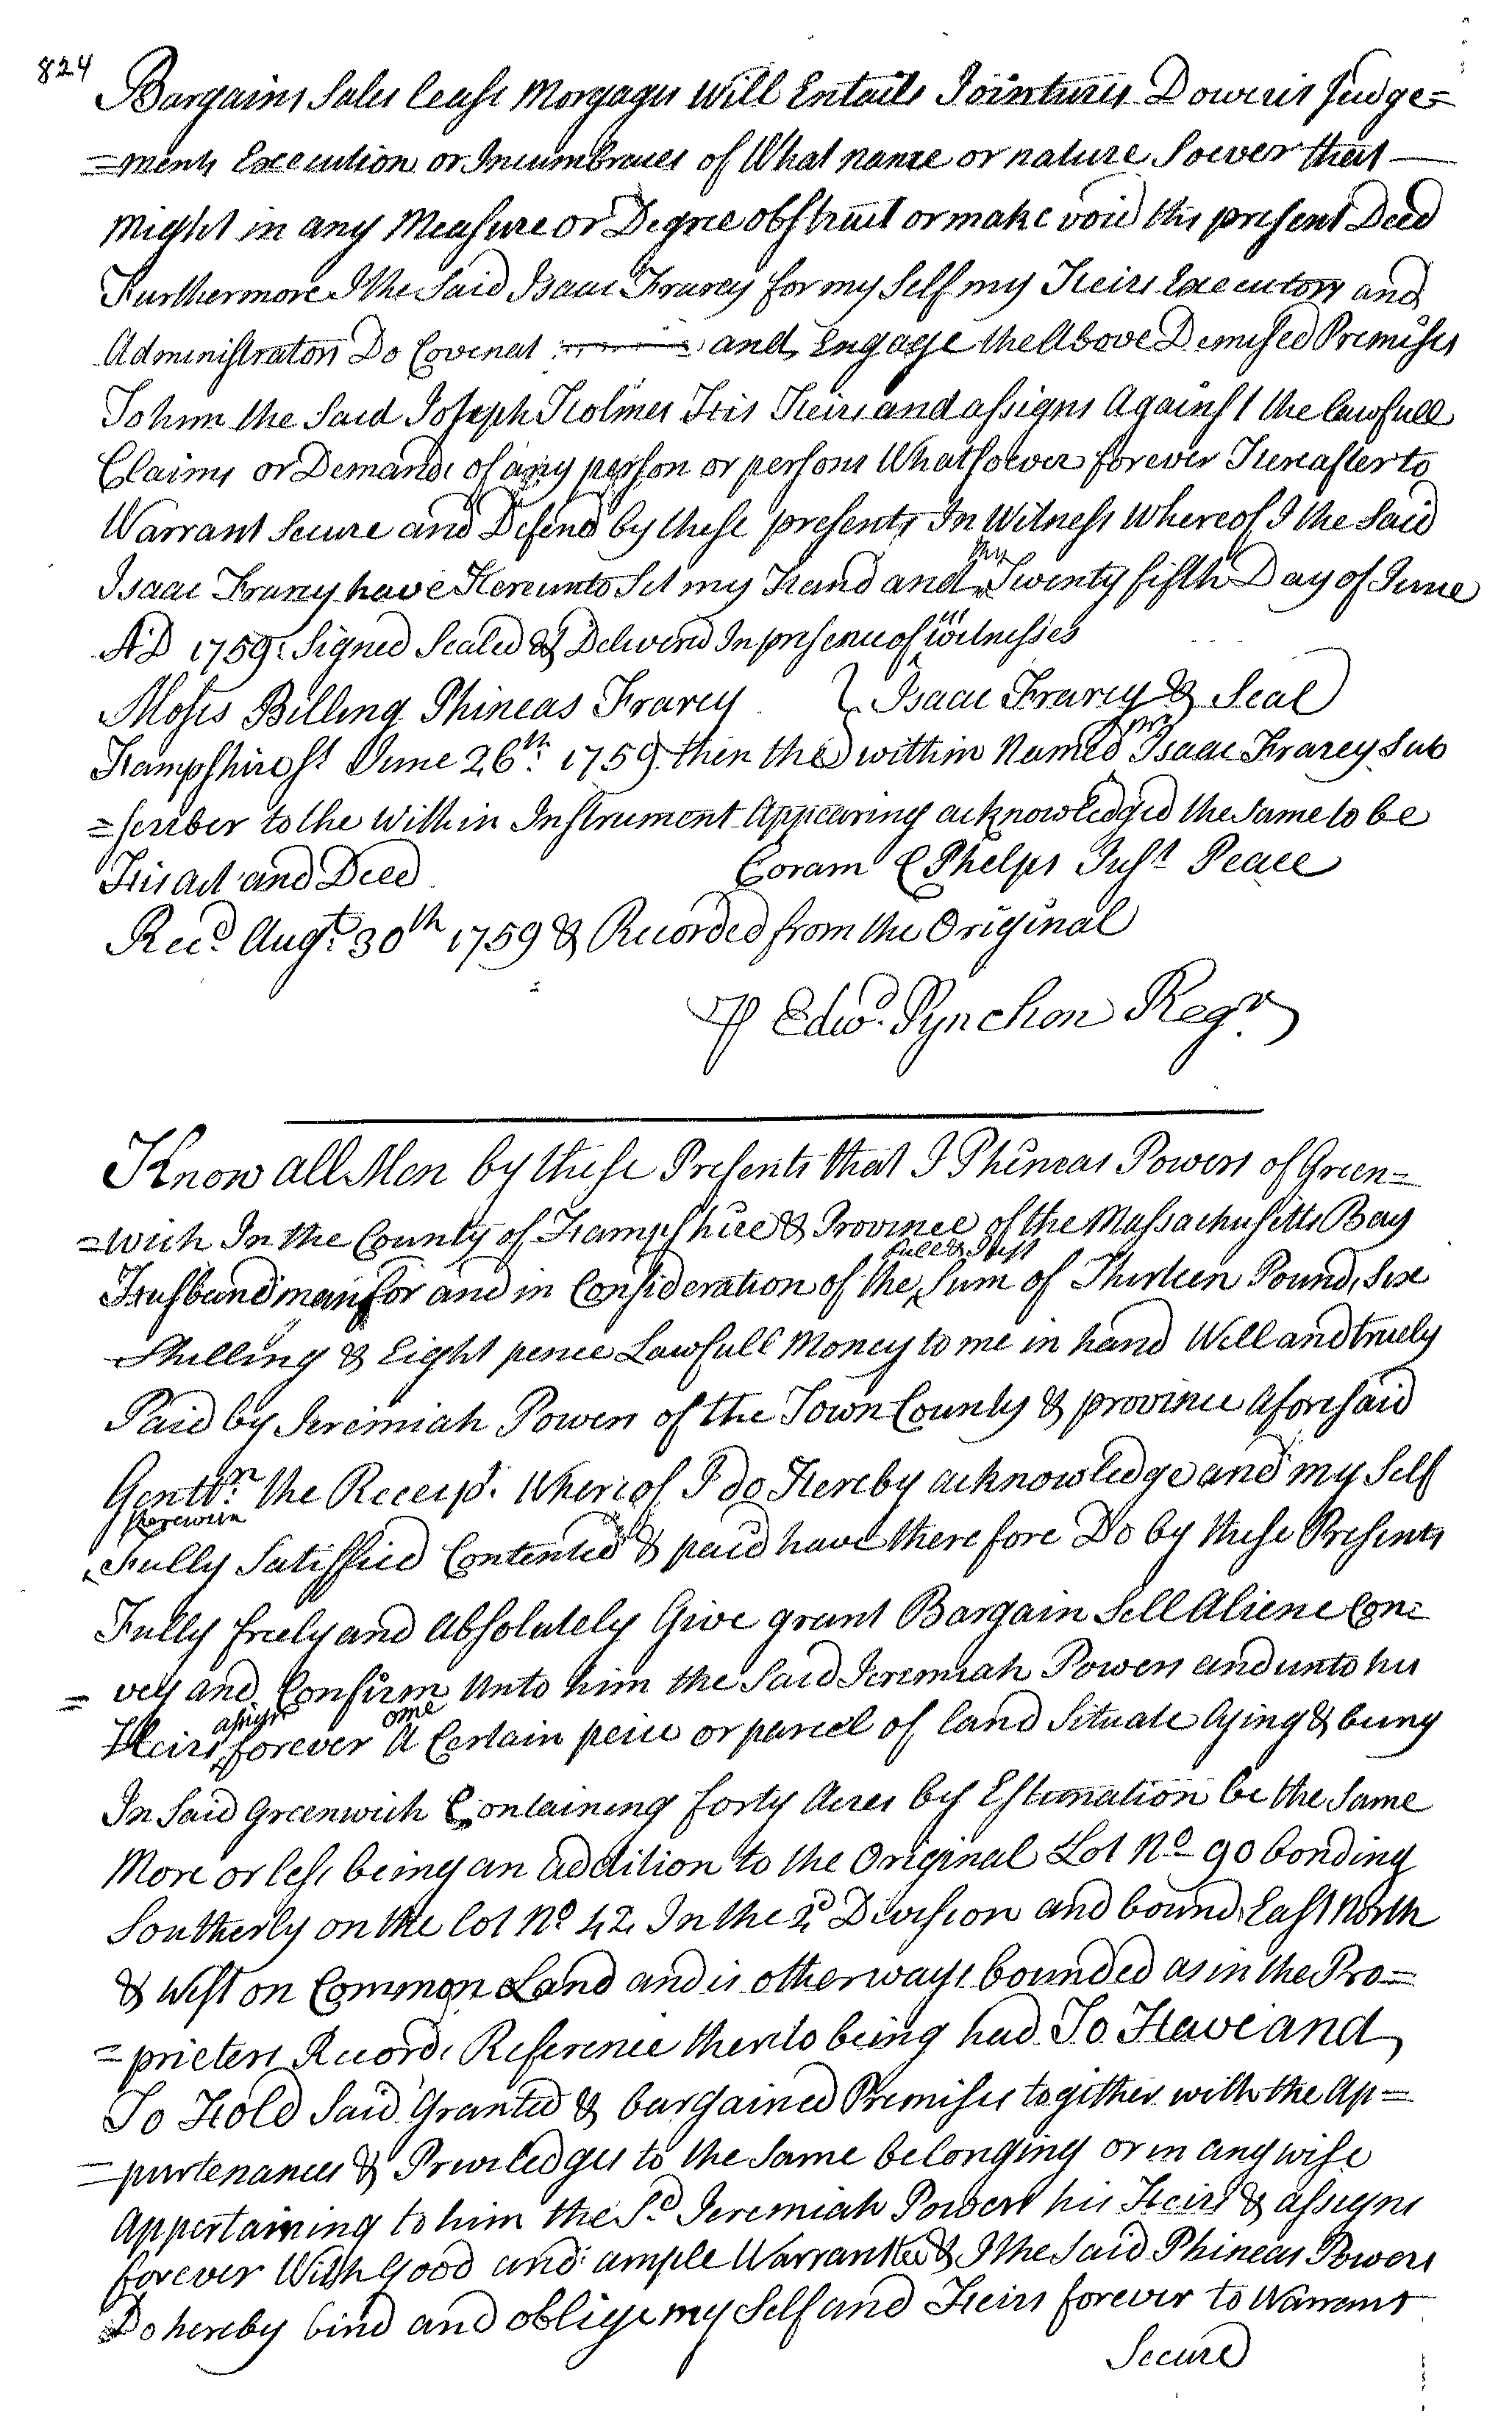 824
Bargains Sales lease Morgages Will Entails Jointures Doweris Judge=
=ments Execution or Incumbrances of What name or nature Soever that
Might in any Measure or Degree obstruct or make void this present Deed
Furthermore I the Said Isaac Frarey for my Self my Heirs Executors and
Administrators Do Covenat and Engage the Above Demised Premises
To him the Said Joseph Holmes His Heirs and assigns Against the lawfull
Claims or Demands of any person or persons Whatsoever forever Hereafter to
Warrant Secure and Defend by these presents In Witness Whereof I the Said
my
Isaac Frarey have Hereunto Set my Hand and Twenty fifth Day of June
AD 1759: Signed Sealed & Deliverd In presence of witnesses
Moses Billing Phineas Frarey } Isaac Frarey & Seal
Hampshire st June 26th 1759 then the within Named Mr Isaac Frarey Sub
=scriber to the Within Instrument Appearing acknowledged the Same to be
His act and Deed Coram E Phelps Just Peace
Recd Augt 30th 1759 & Recorded from the Original
P Edwd Pynchon Regr
Know all Men by these Presents that I Phineas Powers of Green=
=wich In the County of Hampshire & Province of the Massachusetts Bay
full & Just
Husbandman for and in Consideration of the Sum of Thirteen Pounds, Six
Shilling & Eight pence Lawfull Money to me in hand Well and truely
Paid by Jeremiah Powers of the Town County & province Aforesaid
Gentln the Receipt Whereof I do Hereby acknowledge and my Self
therewith
Fully Satisfied Contented & paid have therefore Do by these Presents
Fully freely and Absolutely Give grant Bargain Sell Aliene Con=
=vey and Confirm Unto him the Said Jeremiah Powers and unto his
assigns one
Heirs forever A Certain peice or parcel of land Situate lying & being
In Said Greenwich Containing forty Acres by Estimation be the Same
More or less being an addition to the Original Lot No 90 bonding
Southerly on the lot No 42 In the 2d Division and bound East North
& West on Common Land and is otherways bounded as in the Pro=
=prieters Records Reference thereto being had To Have and
To Hold Said Granted & bargained Premises togither with the Ap=
=purtenances & Priviledges to the Same belonging or in any wise
Appertaining to him the Sd Jeremiah Powers his Heirs & assigns
forever With Good and ample Warrantee & I the Said Phineas Powers
Do hereby bind and oblige my Self and Heirs forever to Warrant
Secure